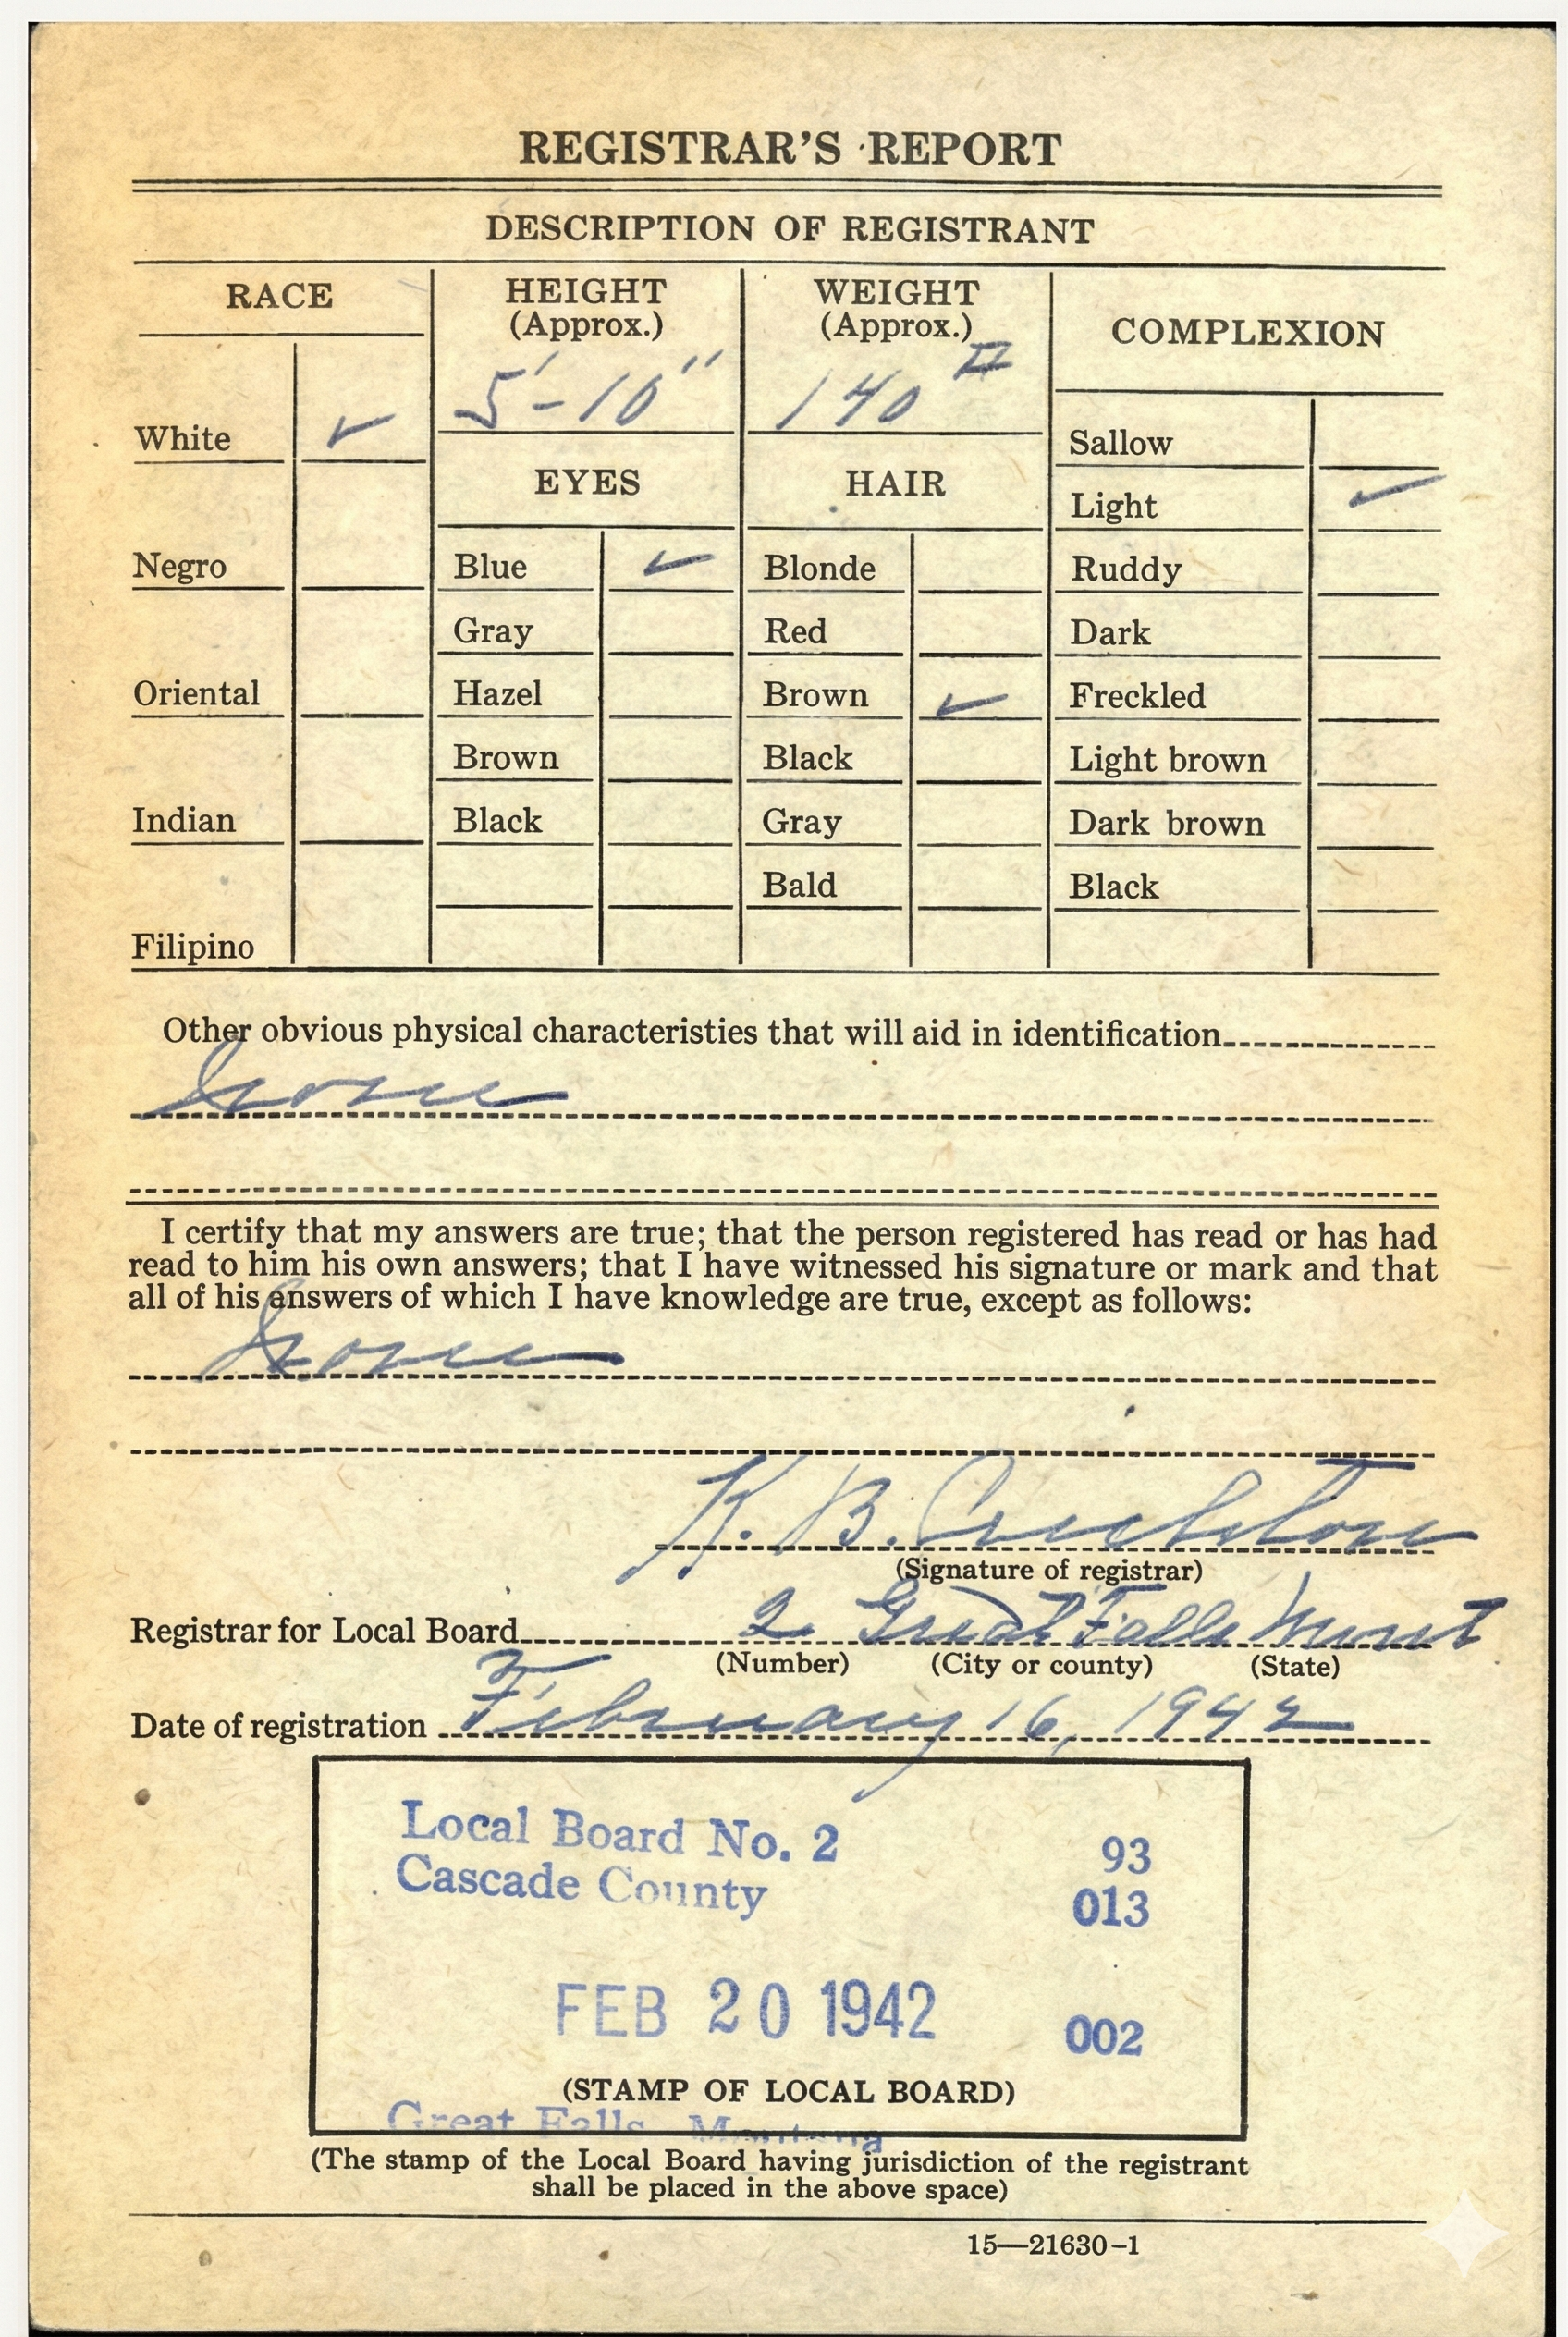 REGISTRAR'S REPORT
DESCRIPTION OF REGISTRANT
RACE
HEIGHT
(Approx.)
5'-10"
WEIGHT
(Approx.)
140 #
COMPLEXION
White ✓
EYES
HAIR
Sallow
Light ✓
Negro
Blue ✓
Blonde
Ruddy
Gray
Red
Dark
Oriental
Hazel
Brown ✓
Freckled
Brown
Black
Light brown
Indian
Black
Gray
Dark brown
Bald
Black
Filipino
Other obvious physical characteristies that will aid in identification
None
I certify that my answers are true; that the person registered has read or has had
read to him his own answers; that I have witnessed his signature or mark and that
all of his answers of which I have knowledge are true, except as follows:
None
K. B.
(Signature of registrar)
Registrar for Local Board 2 Great Falls Mont
(Number) (City or county) (State)
Date of registration February 16, 1942
Local Board No. 2 93
Cascade County 013
FEB 20 1942 002
(STAMP OF LOCAL BOARD)
Great Falls, Montana
(The stamp of the Local Board having jurisdiction of the registrant
shall be placed in the above space)
15—21630-1